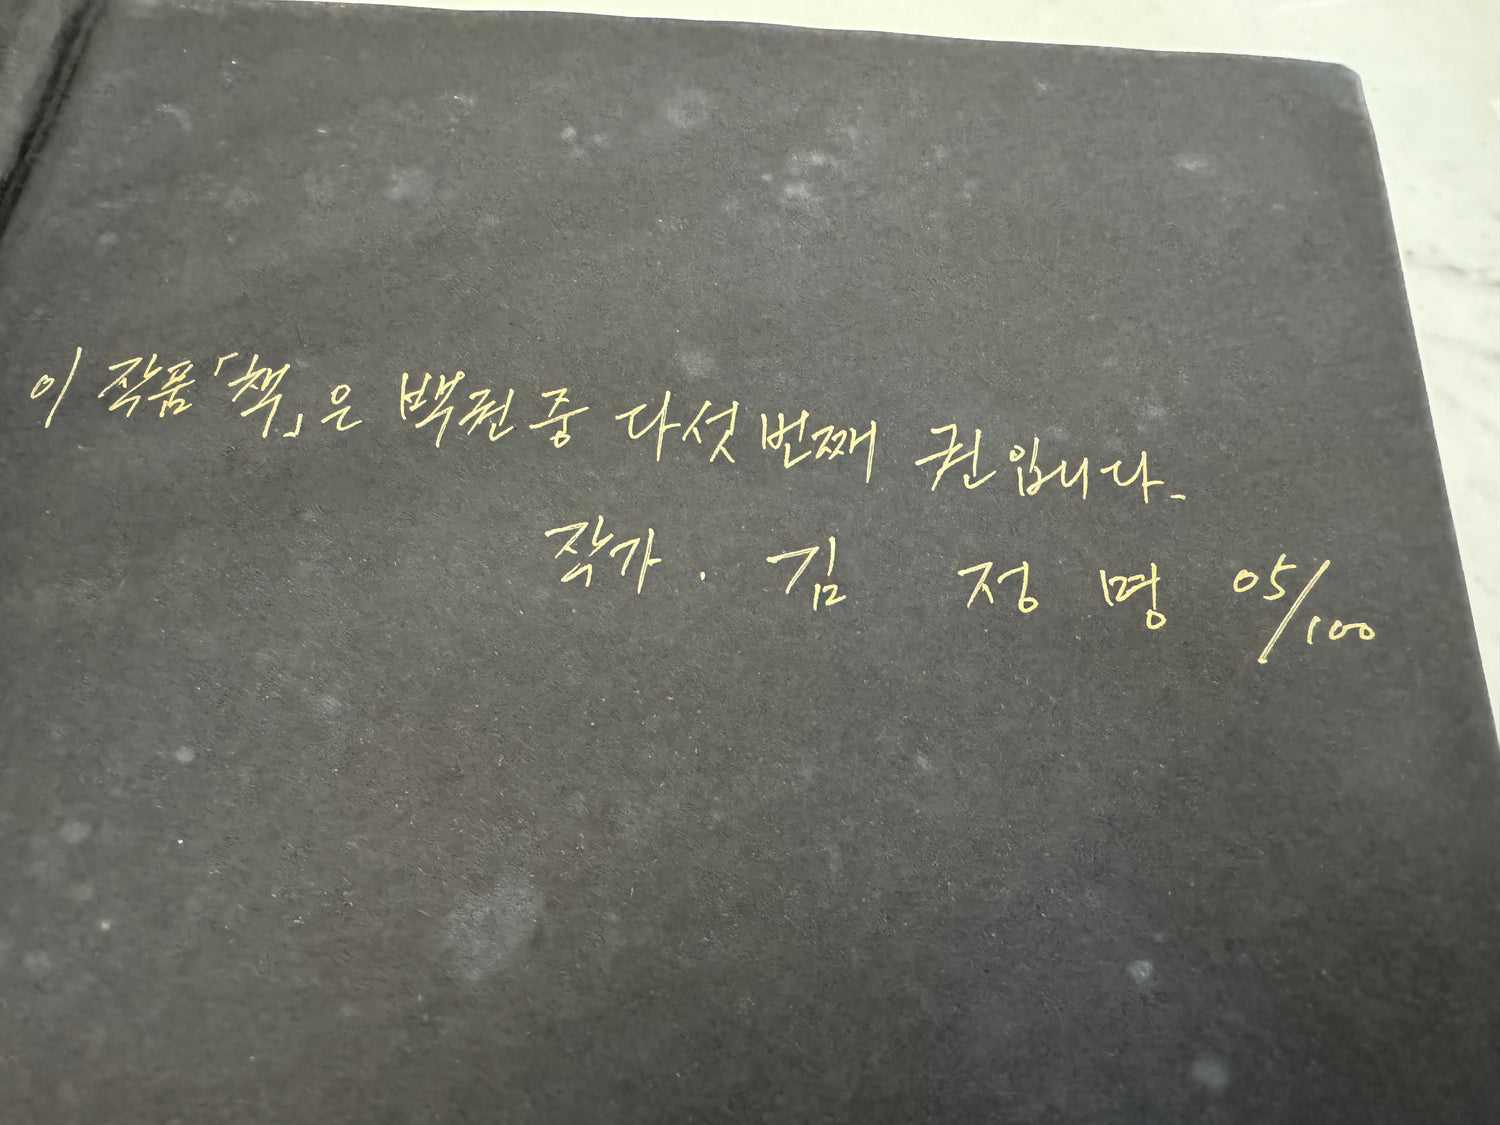 이 작품 「책」은 백권 중 다섯 번째 권입니다.
작가. 김 정 명 05/100